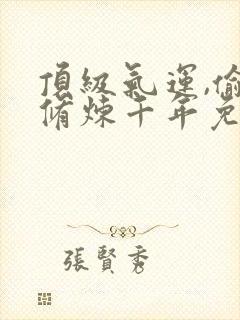 頂級氣運,偷
脩煉千年兔
張賢秀